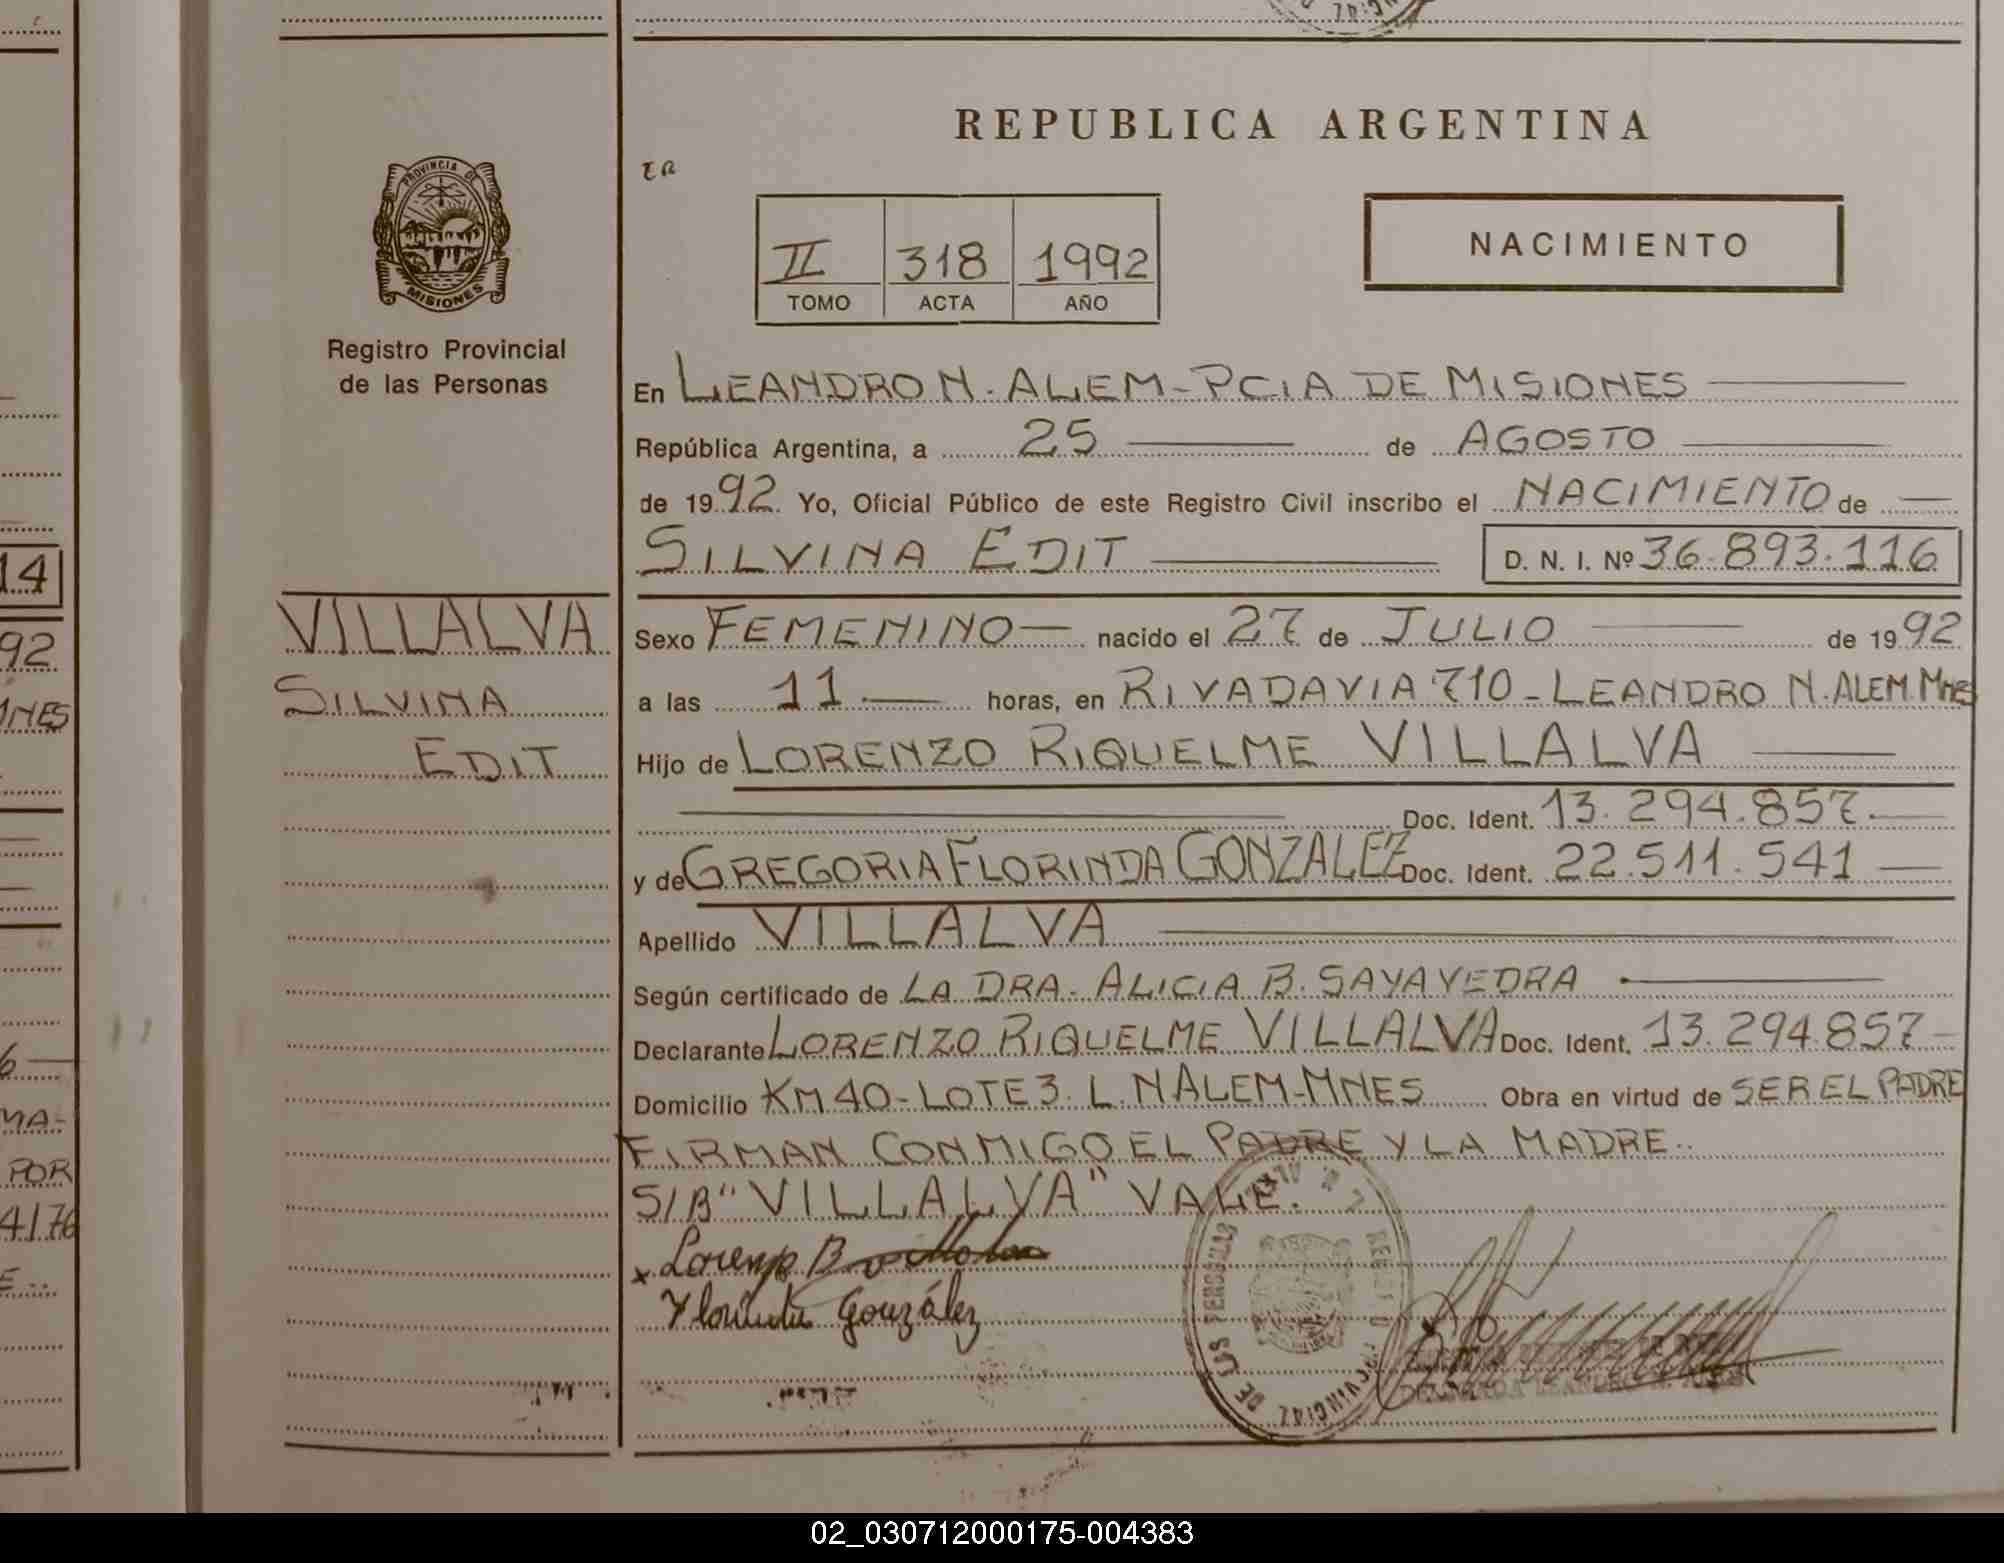 REPUBLICA ARGENTINA
PROVINCIA DE
MISIONES
Registro Provincial
de las Personas
II 318 1992
TOMO ACTA AÑO
NACIMIENTO
En LEANDRO N. ALEM - PCIA DE MISIONES
República Argentina, a 25 de AGOSTO
de 1992. Yo, Oficial Público de este Registro Civil inscribo el NACIMIENTO de
SILVINA EDIT D. N. I. Nº 36.893.116
VILLALVA
SILVINA
EDIT
Sexo FEMENINO nacido el 27 de JULIO de 1992
a las 11 horas, en RIVADAVIA 710 - LEANDRO N. ALEM. MNES
Hijo de LORENZO RIQUELME VILLALVA
Doc. Ident. 13.294.857.
y de GREGORIA FLORINDA GONZALEZ Doc. Ident. 22.511.541
Apellido VILLALVA
Según certificado de LA DRA. ALICIA B. SAYAVEDRA
Declarante LORENZO RIQUELME VILLALVA Doc. Ident. 13.294.857
Domicilio KM 40 - LOTE 3. L. N ALEM - MNES Obra en virtud de SER EL PADRE
FIRMAN CONMIGO EL PADRE Y LA MADRE..
S/B "VILLALVA" VALE.
x Lorenzo R
Florinda González
14
92
MNES
6
MA-
POR
4176
E..
02_030712000175-004383